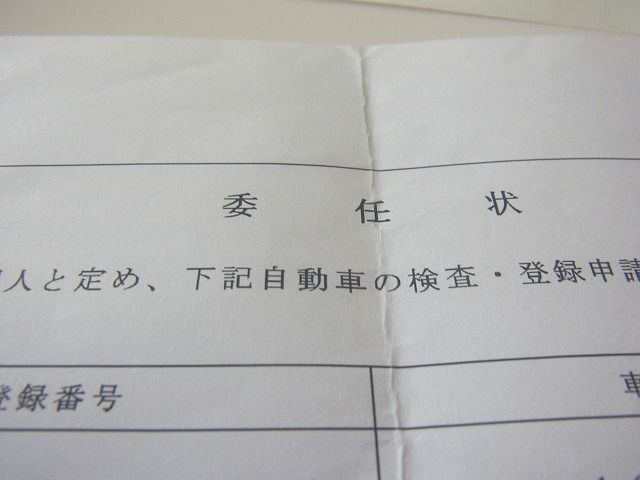 委任状
人と定め、下記自動車の検査・登録申請
登録番号
車